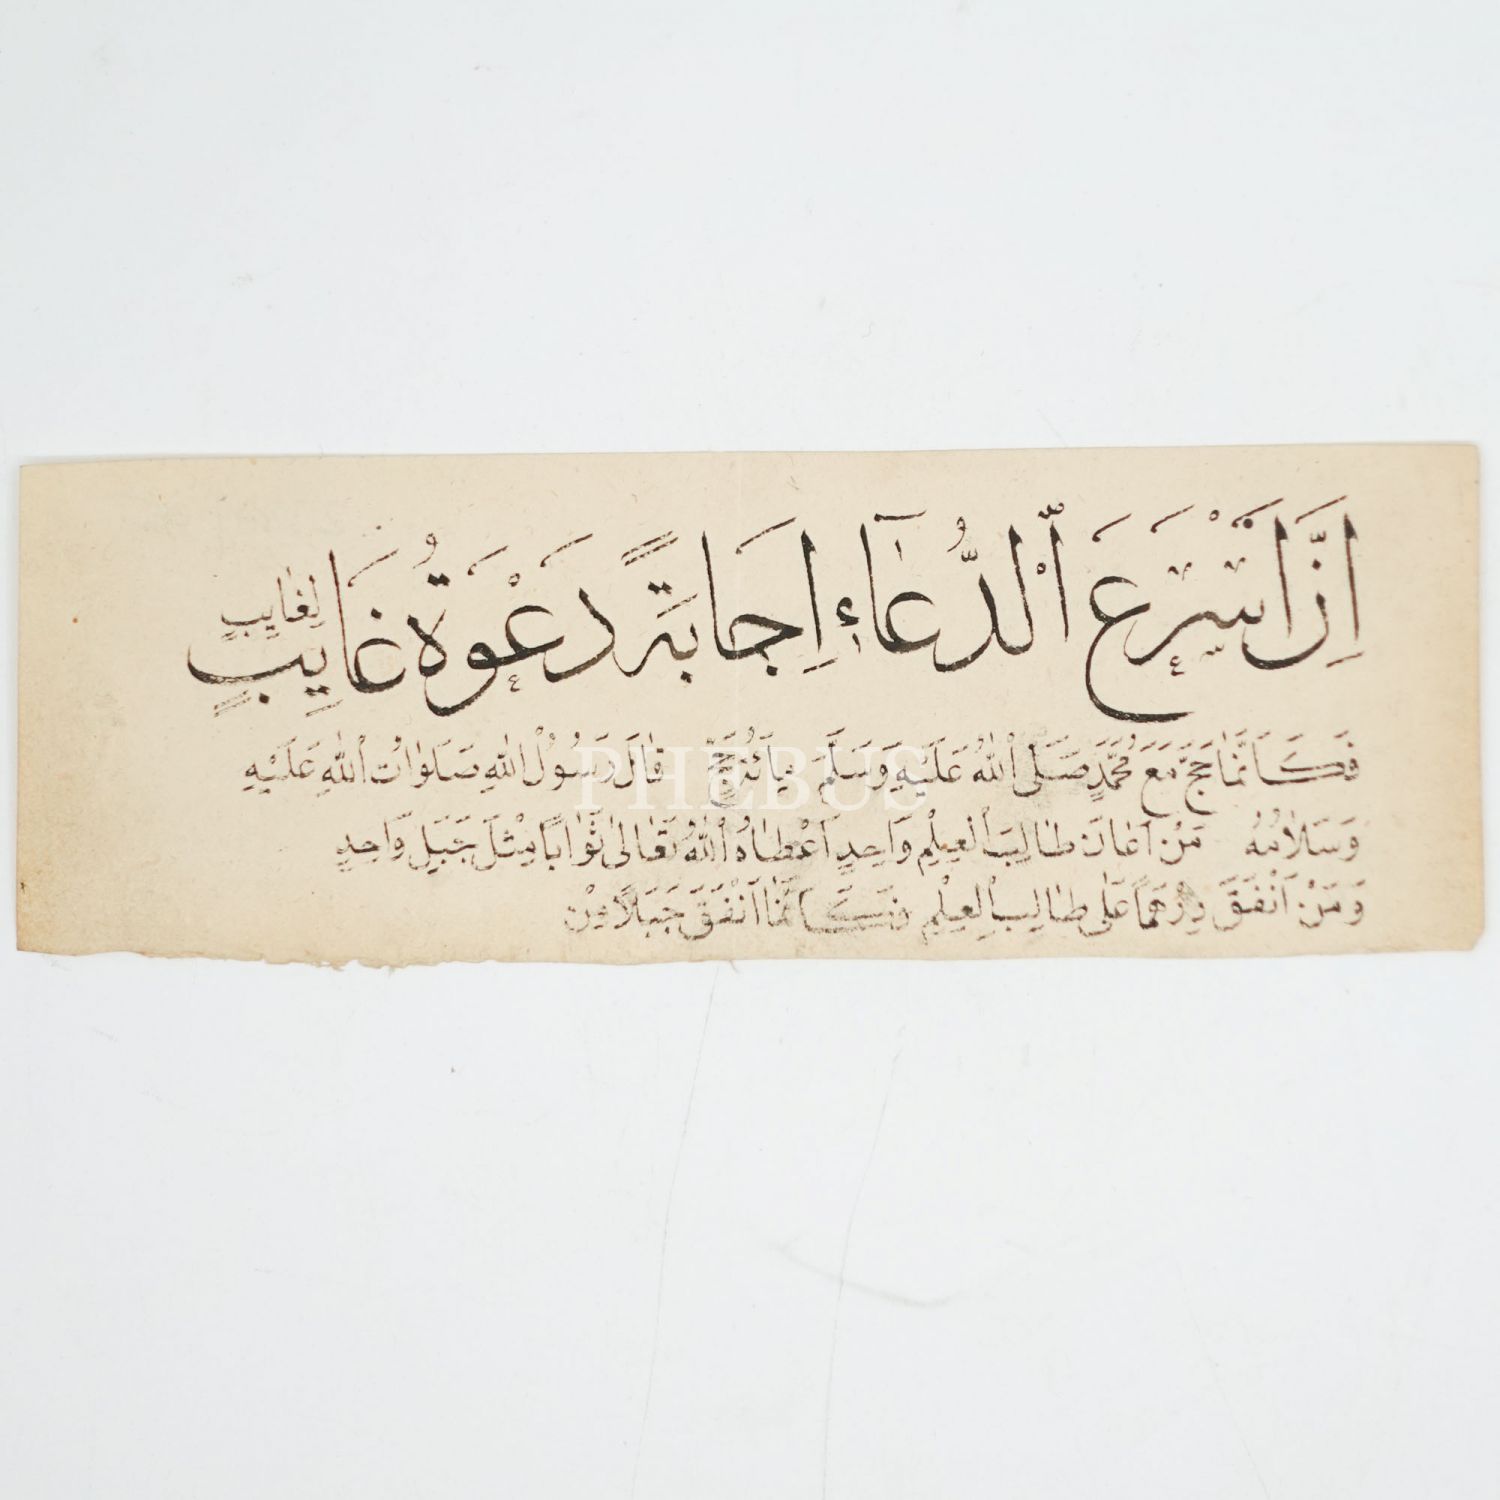 اِنَّ اَسْرَعَ الدُّعَآءِ اِجَابَةً دَعْوَةُ غَايِبٍ لِغَايِبٍ
فَكَاَنَّمَا حَجَّ مَعَ مُحَمَّدٍ صَلَّى اللّٰهُ عَلَيْهِ وَسَلَّمَ مِائَةَ حَجٍّ قَالَ رَسُولُ اللّٰهِ صَلَوَاتُ اللّٰهِ عَلَيْهِ
وَسَلَامُهُ مَنْ اَعَانَ طَالِبَ الْعِلْمِ وَاحِدٍ اَعْطَاهُ اللّٰهُ تَعَالٰى ثَوَابًا مِثْلَ جَبَلِ وَاحِدٍ
وَمَنْ اَنْفَقَ دِرْهَمًا عَلٰى طَالِبِ الْعِلْمِ فَكَاَنَّمَا اَنْفَقَ جَبَلًا مِنْ
PHEBUS